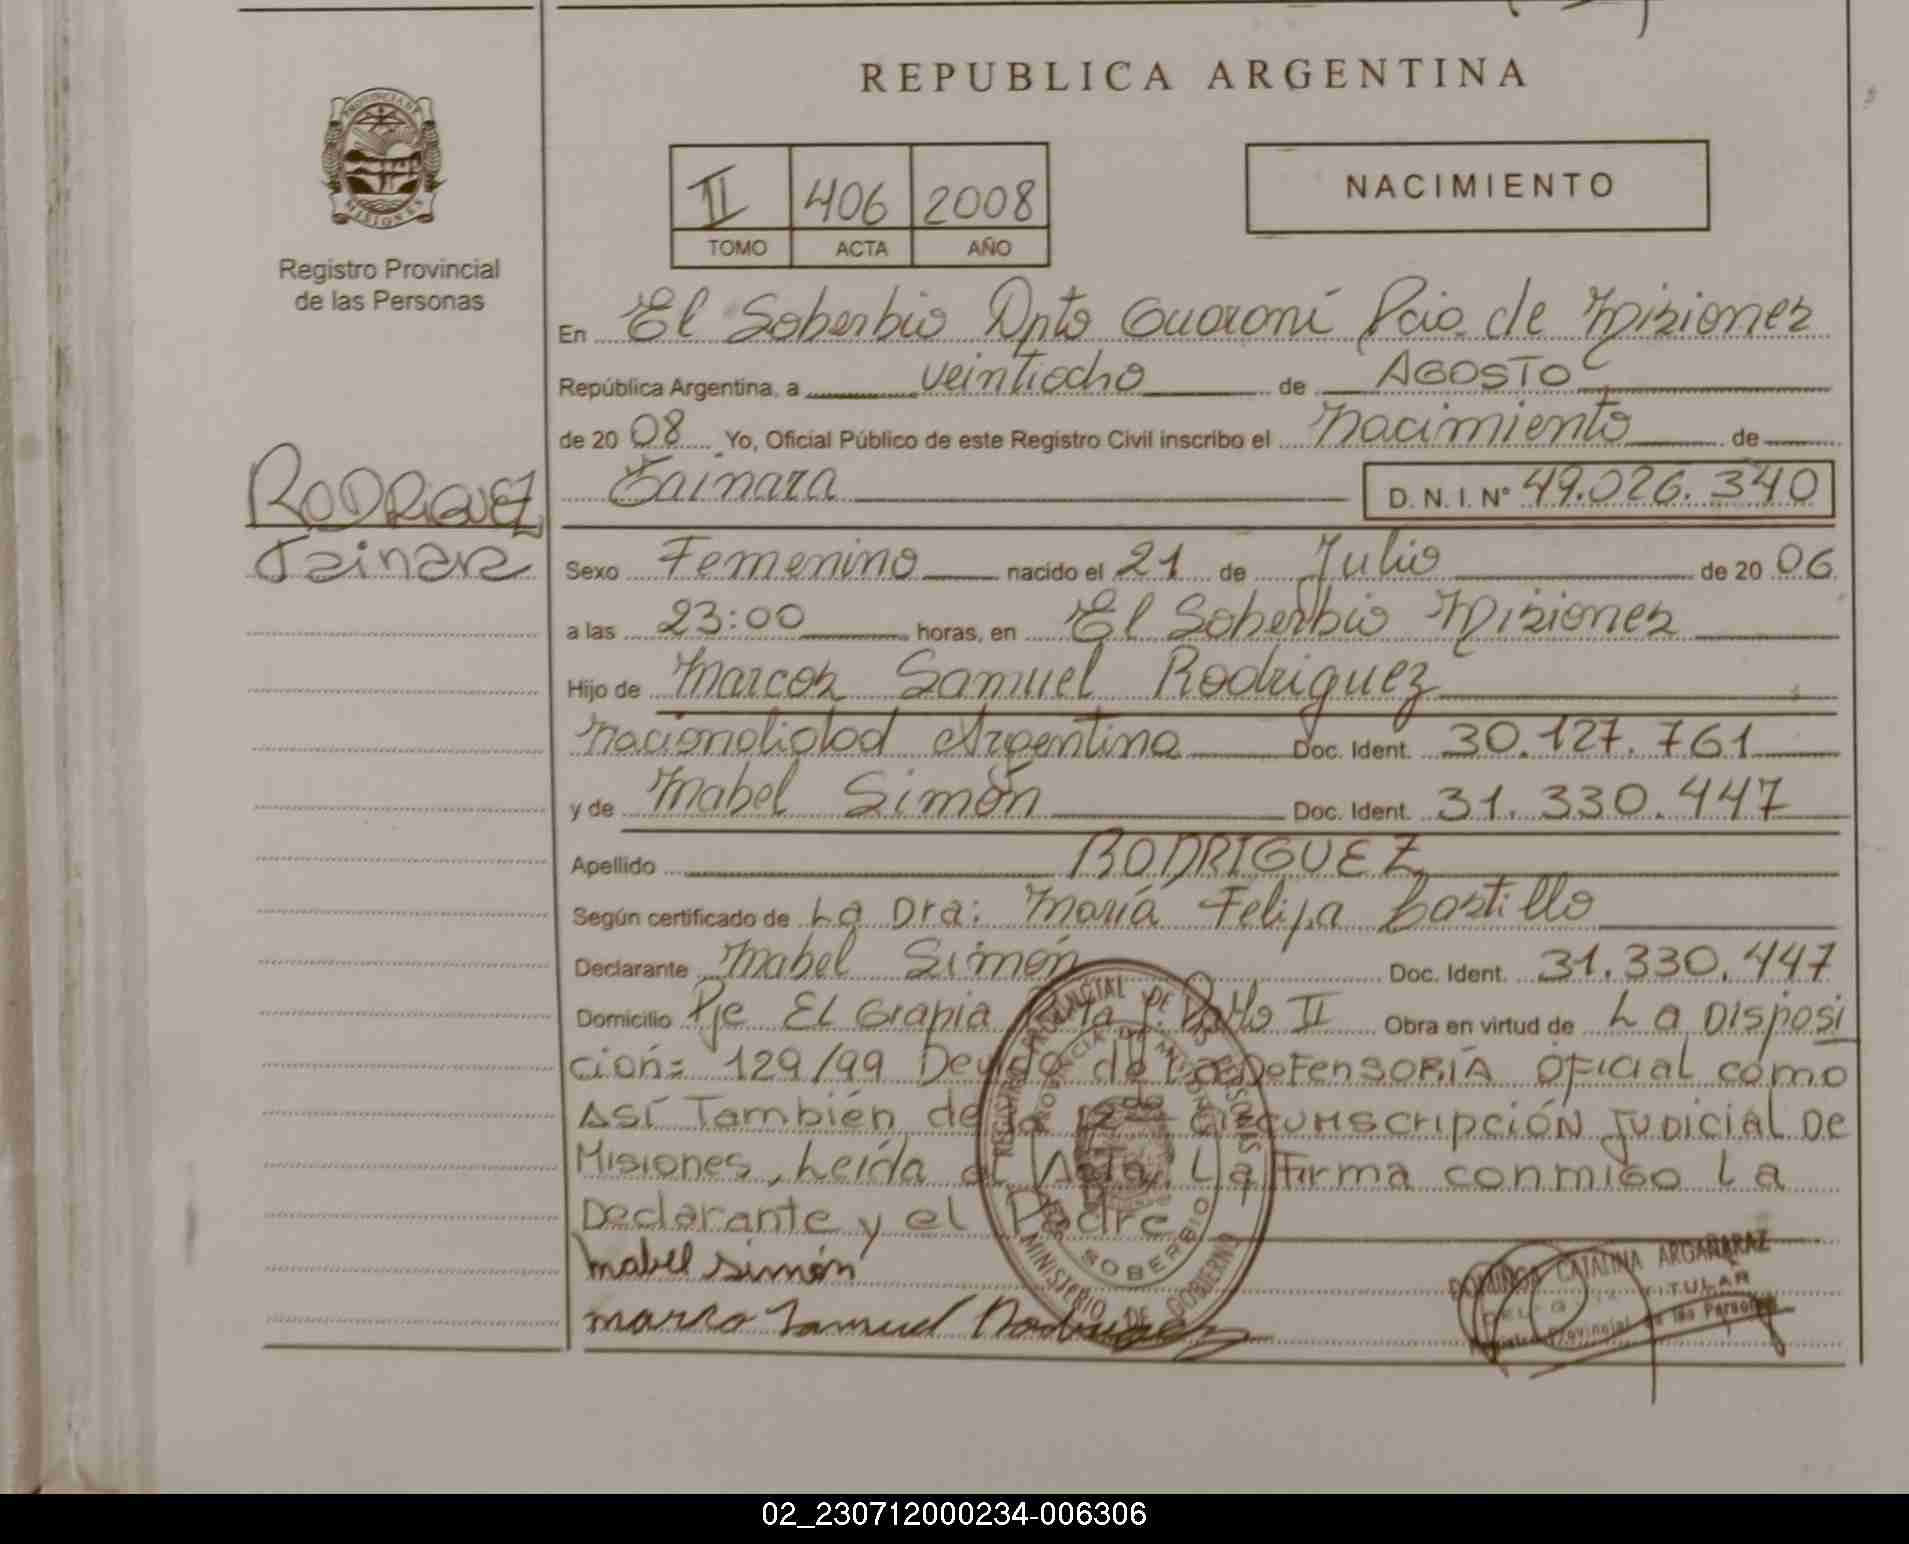 REPUBLICA ARGENTINA
PROVINCIA DE
MISIONES
Registro Provincial
de las Personas
II 406 2008
TOMO ACTA AÑO
NACIMIENTO
En El Soberbio Dpto Guaraní Pcia. de Misiones
República Argentina, a veintiocho de AGOSTO
de 20 08 Yo, Oficial Público de este Registro Civil inscribo el nacimiento de
Tainara D. N. I. Nº 49.026.340
RODRIGUEZ
Tainara
Sexo Femenino nacido el 21 de Julio de 20 06
a las 23:00 horas, en El Soberbio Misiones
Hijo de Marcos Samuel Rodriguez
nacionalidad Argentina Doc. Ident. 30.127.761
y de Mabel Simón Doc. Ident. 31.330.447
Apellido RODRIGUEZ
Según certificado de La Dra: María Felipa Castillo
Declarante Mabel Simón Doc. Ident. 31.330.447
Domicilio Pje El Grapia II Obra en virtud de La Disposi
ción: 129/99 de La Defensoría Oficial como
Así También de la Circumscripción Judicial De
Misiones, Leída el Acta, La Firma conmigo La
Declarante y el Padre
Mabel Simón
marco Samuel Rodriguez
REGISTRO PROVINCIAL DE LAS PERSONAS
PROVINCIA DE MISIONES
EL SOBERBIO
MINISTERIO DE GOBIERNO
DOMINGA CATALINA ARGAÑARAZ
TITULAR
Registro Provincial de las Personas
02_230712000234-006306